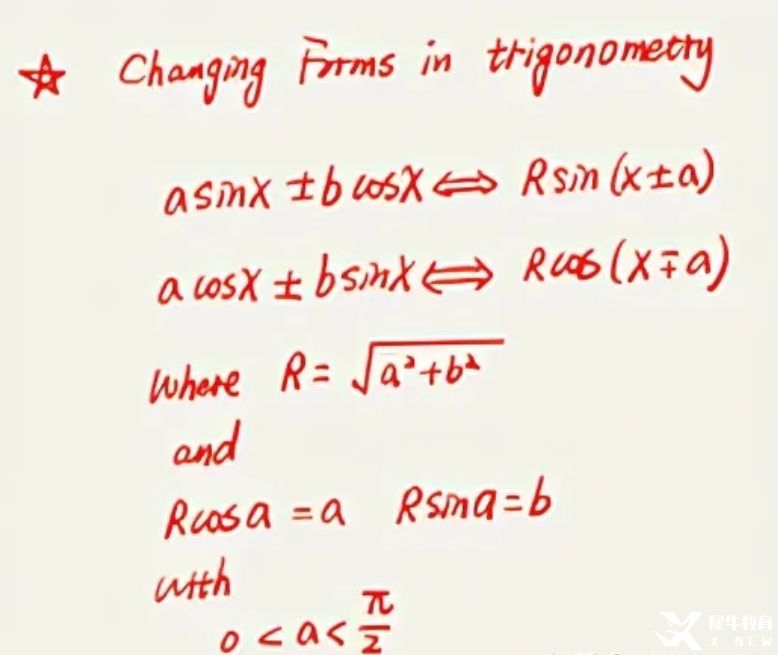 ☆ Changing Forms in trigonometry
a sinx ± b cosx ⟺ R sin (x ± a)
a cosx ± b sinx ⟺ R cos (x ∓ a)
where R = √(a²+b²)
and
Rcosa = a Rsina = b
with
0 < a < π/2
犀牛教育
X-NEW